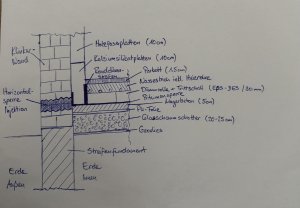 Klinker
Wand
Holzfaserplatten (10cm)
Kalziumsilikatplatten (10cm)
Randdämm-
streifen
Parkett (1,5cm)
Nassestrich inkl. Heizrohre
Dämmrolle + Trittschall (EPS-
Bitumensperre
Magerbeton (5cm)
Horizontal-
sperre
Injektion
PE-Folie
Glasschaumschotter (20-25cm)
Geovlies
Streifenfundament
Erde
Außen
Erde
Innen